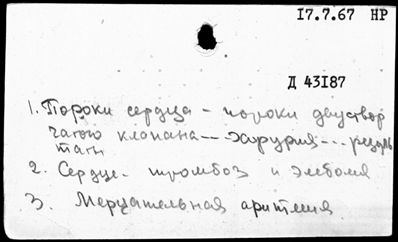 17.7.67 НР
Д 43187
1. Пороки сердца - пороки двуствор
чатого клапана -- хирургия --- резуль
таты
2. Сердце - тромбоз и эмболия
3. Мерцательная аритмия